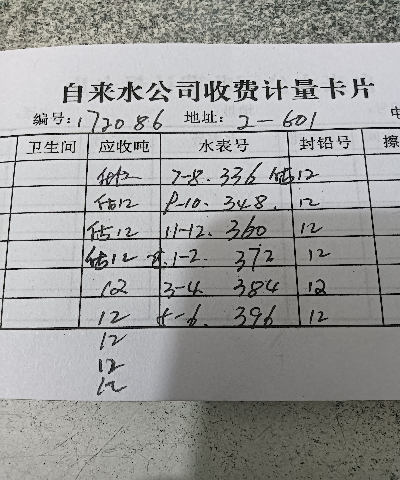 自来水公司收费计量卡片
编号:172086 地址: 2-601
卫生间 应收吨 水表号 封铅号 擦
估12 7-8. 336 估12
估12 9-10. 348. 12
估12 11-12. 360 12
估12 1-2. 372 12
12 3-4 384 12
12 5-6. 396 12
12
12
12